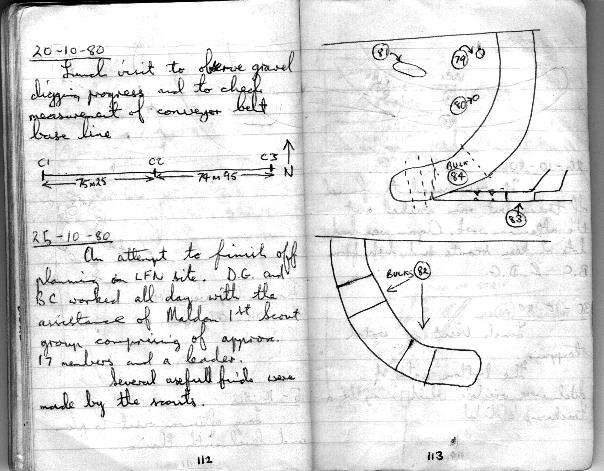 20-10-80
Lunch visit to observe gravel
digging progress and to check
measurement of conveyor belt
base line.
C1 C2 C3
75m25 74m95 N
25-10-80
An attempt to finish off
planning on LFN site. D.G. and
BC worked all day with the
assistance of Maldon 1st Scout
group comprising of approx.
17 members and a leader.
Several usefull finds were
made by the scouts.
112
81 79
80
BULK
84
83
BULKS 82
113